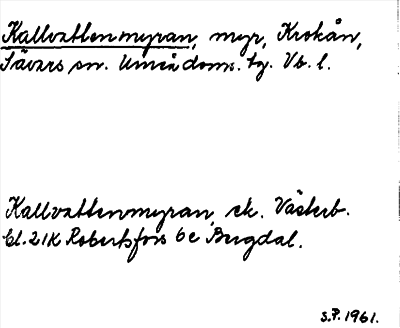 Kallvattenmyran, myr, Krokån,
Sävars sn. Umeå doms. tg. Vb. l.
Kallvattenmyran, ek. Västerb.
bl. 21K Robertsfors 6c Bergdal.
S.P. 1961.